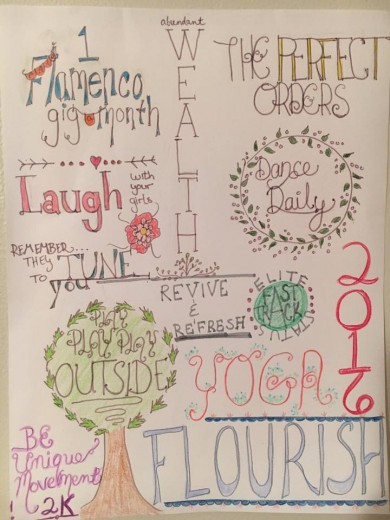 1
Flamenco
gig a month
abundant
WEALTH
THE PERFECT
ORDERS
Laugh
with
your
girls
Dance
Daily
REMEMBER...
THEY TUNE
TO you
REVIVE
&
REFRESH
ELITE
FAST
TRACK
STATUS
2016
PLAY
PLAY PLAY
OUTSIDE
YOGA
BE
Unique
Movement
2K
FLOURISH